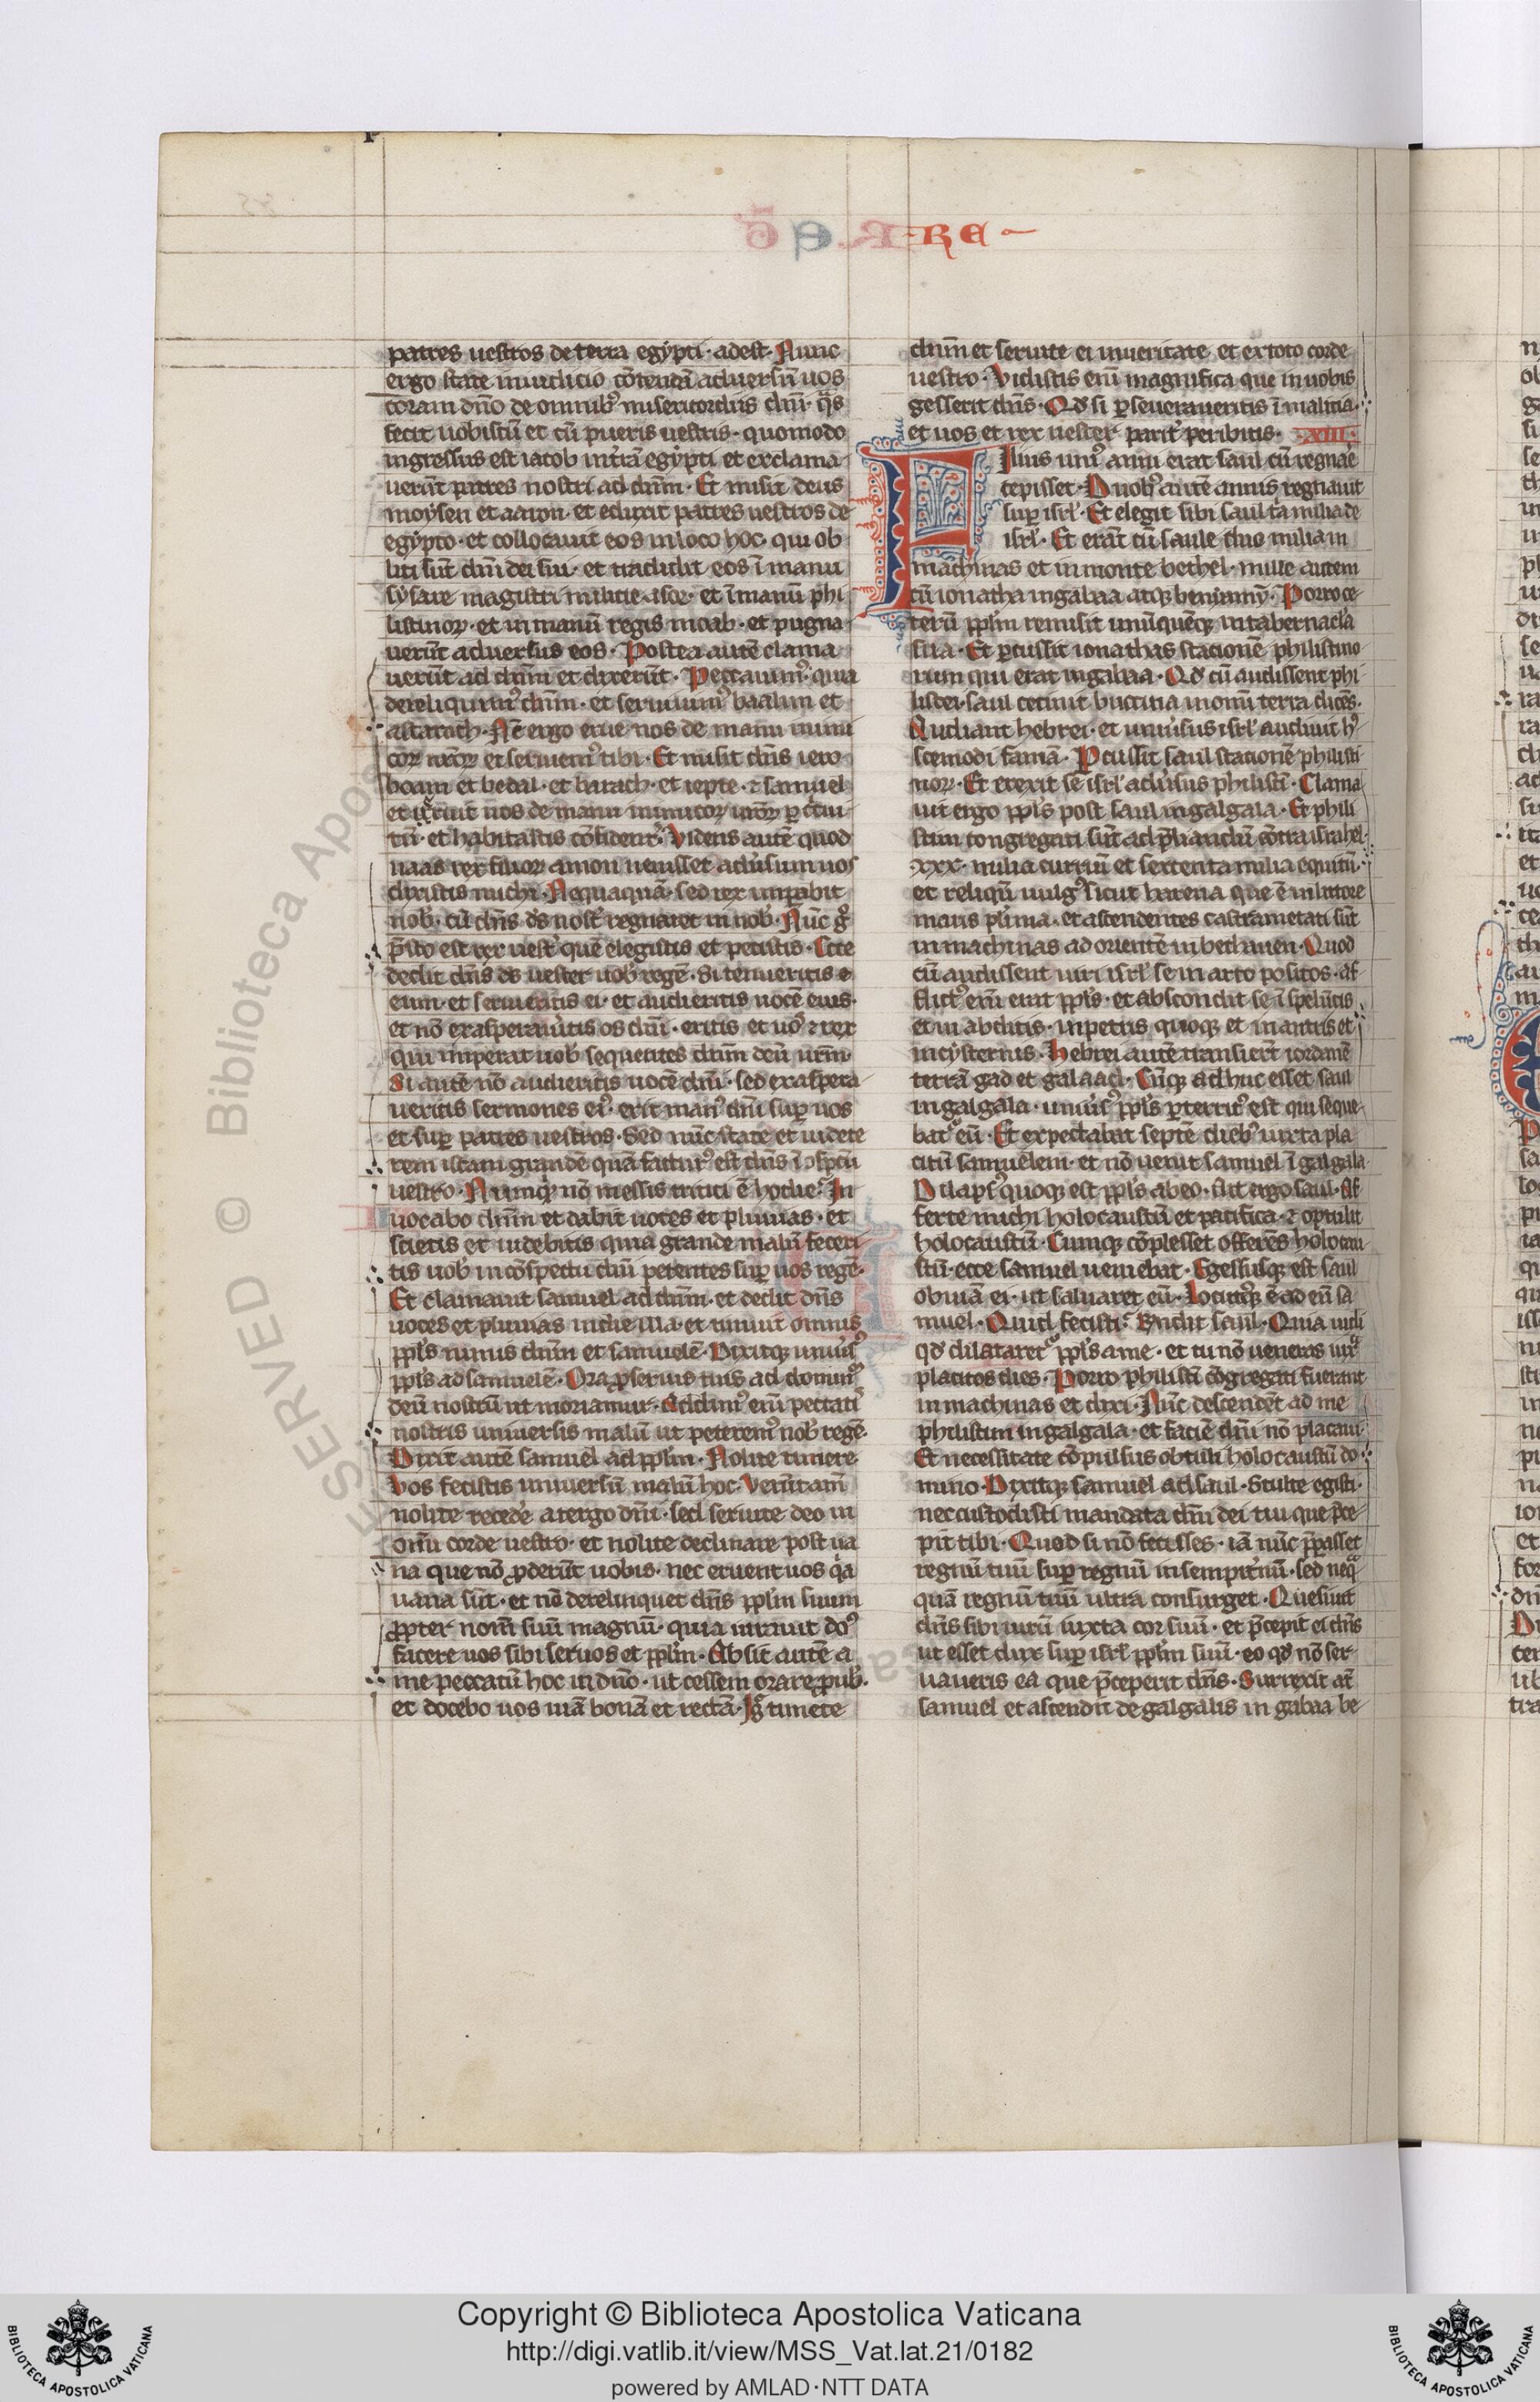 RE
patres uestros de terra egypti· adest· Nunc
ergo state in iudicio cōtendā aduersū uos
coram dn̄o de omnib᷒ misericordiis dn̄i· qͣs
fecit uobiscū et cū pueris uestris· quomodo
ingressus est iacob in trā egypti et exclama
uerūt patres nostri ad dn̄m· Et misit deus
moysen et aaron· et eduxit patres uestros de
egypto· et collocauit eos in loco hoc· qui ob
liti sūt dn̄i dei sui· et tradidit eos ī manu
sysare magistri milicie asor· et ī manū phi
listinoꝝ· et in manū regis moab· et pugna
uerūt aduersus eos· Postea autē clama
uerūt ad dn̄m et dixerūt· Peccauim᷒· quia
dereliquim᷒ dn̄m· et seruiuim᷒ baalim et
astaroth· Nc̄ ergo erue nos de manu inimi
coꝝ nr̄oꝝ et seruiem᷒ tibi· Et misit dn̄s iero
boam et bedal· et barach· et iepte· ⁊ samuel
et eruit uos de manu inimicoꝝ ur̄oꝝ ꝑ circui
tū· et habitastis cōfident᷒· Videns autē quod
naas rex filioꝝ amon uenisset aduersum uos
dixistis michi· Nequaquā· sed rex imꝑabit
nob᷒· cū dn̄s ds̄ nost᷒ regnaret in nob᷒· Nūc gͦ
p̄sto est rex uest᷒ quē elegistis et petistis· Ecce
dedit dn̄s ds̄ uester uob᷒ regē· Si timueritis
eum· et serueritis ei· et audieritis uocē eius·
et nō exasperau᷒itis os dn̄i· eritis et uos ⁊ rex
qui imperat uob᷒ sequentes dn̄m deū ur̄m·
Si autē nō audieritis uocē dn̄i· sed exaspera
ueritis sermones ei᷒· erit man᷒ dn̄i suꝑ uos
et suꝑ patres uestros· Sed nūc state et uidete
rem istam grandē quā factur᷒ est dn̄s ī ꝯspcū
uestro· Nunqͥd nō messis tritici ē hodie? In
uocabo dn̄m et dabit uoces et pluuias· et
scietis et uidebitis quia grande malū feceri
tis uob᷒ in cōspectu dn̄i petentes suꝑ uos regē·
Et clamauit samuel ad dn̄m· et dedit dn̄s
uoces et pluuias in die illa· et timuit omnis
ppl̄s nimis dn̄m et samuelē· Dixitqꝫ uniu᷒s᷒
ppl̄s ad samuelē· Ora ꝓ seruis tuis ad dominū
deū nostrū ut nō moriamur· Addidim᷒ enī peccatis
nostris uniuersis malū ut peterem᷒ nob᷒ regē·
Dixit autē samuel ad ppl̄m· Nolite timere·
Vos fecistis uniuersū malū hoc· Verūtam̄
nolite recede᷒ a tergo dn̄i· sed seruite deo in
omi corde uestro· et nolite declinare post ua
na que nō ꝓderūt uobis· nec eruent uos qͥa
uana sūt· et nō derelinquet dn̄s ppl̄m suum
ꝓpter nom̄ suū magnū· quia iurauit do᷒
facere uos sibi seruos et ppl̄m· Absit autē a
me peccatū hoc in dn̄o· ut cessem orare ꝓ uob᷒·
et docebo uos uiā bonā et rectā· Igͥ timete
dn̄m et seruite ei in ueritate et ex toto corde
uestro· Vidistis enī magnifica que in uobis
gesserit dn̄s· Qd̄ si ꝑseueraueritis ī malitia·
et uos et rex uester parit᷒ peribitis· XIII·
Filius uni᷒ anni erat saul cū regnare
cepisset· Duob᷒ autē annis regnauit
suꝑ isrl̄· Et elegit sibi saul tria milia de
isrl̄· Et erāt cū saule duo milia in
machinas et in monte bethel· mille autem
cū ionatha in gabaa atqꝫ beniamin· Porro ce
terū ppl̄m remisit unūquēqꝫ in tabernacl̄a
sua· Et ꝑcussit ionathas stacionē philistino
rum qui erat in gabaa· Qd̄ cū audissent phi
listei· saul cecinit buccina in omī terra dicēs·
Audiant hebrei· et uniu᷒sus isrl̄ audiuit h᷒
scemodi famā· Pcussit saul stationē philisti
noꝝ· Et erexit se isrl̄ adu᷒sus philistī· Clama
uit ergo ppl̄s post saul in galgala· Et phili
stiim congregati sūt ad p̄liandū cōtra israhel·
xxx· milia curruū et sex centa milia equitū·
et reliqū uulg᷒ sicut harena que ē in littore
maris pl᷒ima· et ascendentes castrametati sūt
in machinas ad orientē in bethauen· Quod
cū audissent uiri isrl̄ se in arto positos· af
flict᷒ enī erat ppl̄s· et abscondit se ī speluncis
et in abditis· in petris quoqꝫ et in antris et
in cysternis· Hebrei autē transierūt iordanē
terrā gad et galaad· Cūqꝫ adhuc esset saul
in galgala· uniu᷒s᷒ ppl̄s ꝑterrit᷒ est qui seque
batᷣ eū· Et expectabat septē dieb᷒ iuxta pla
citū samuelem· et nō uenit samuel ī galgala
Dilaps᷒ quoqꝫ est ppl̄s ab eo· Ait ergo saul· Af
ferte michi holocaustū et pacifica· ⁊ optulit
holocaustū· Cumqꝫ cōplesset offerēs holocau
stū· ecce samuel ueniebat· Egressusqꝫ est saul
obuiā ei· ut salutaret eū· Locutusqꝫ ē ad eū sa
muel· Quid fecisti? Rn̄dit saul· Quia uidi
qd̄ dilataretᷣ ppl̄s a me· et tu nō ueneras iuxͣ
placitos dies· Porro philistī cōgregati fuerant
in machinas et dixi· Nūc descendēt ad me
philistiim in galgala· et faciē dn̄i nō placaui·
Et necessitate cōpulsus obtuli holocaustū do
mino· Dixitqꝫ samuel ad saul· Stulte egisti·
nec custodisti mandata dn̄i dei tui que p̄ce
pit tibi· Quod si nō fecisses· iā nūc p̄parasset
regnū tuū suꝑ regnū in sempit᷒nū· sed neqͣ
quā regnū tuū ultra consurget· Quesiuit
dn̄s sibi uirū iuxta cor suū· et p̄cepit ei dn̄s
ut esset dux suꝑ isrl̄ ppl̄m suū· eo qd̄ nō ser
uaueris ea que p̄ceperit dn̄s· Surrexit at̄
samuel et ascendit de galgalis in gabaa be
Copyright © Biblioteca Apostolica Vaticana
http://digi.vatlib.it/view/MSS_Vat.lat.21/0182
powered by AMLAD·NTT DATA
BIBLIOTECA APOSTOLICA VATICANA
BIBLIOTECA APOSTOLICA VATICANA